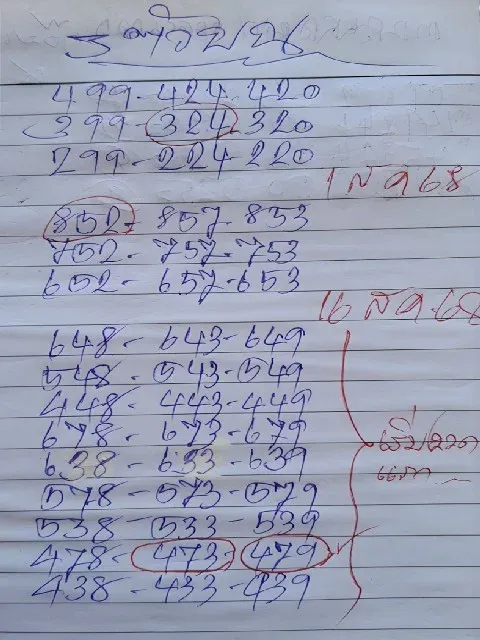 499-424-420
399-324-320
299-224-220
1 ส ค 68
852-857-853
752-757-753
652-657-653
16 ส ค 68
648-643-649
548-543-549
448-443-449
678-673-679
638-633-639
578-573-579
538-533-539
478-473-479
438-433-439